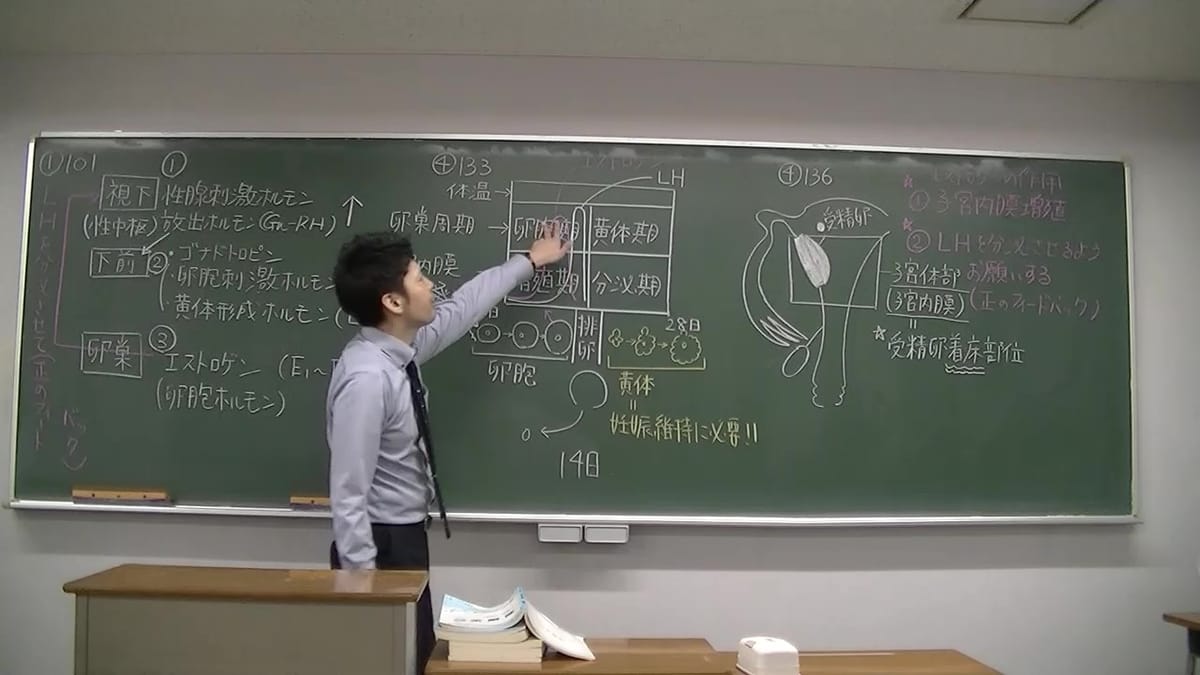 ①101
①
視下 性腺刺激ホルモン
(性中枢) 放出ホルモン(Gn-RH) ↑
下前 ② ・ゴナドトロピン
・卵胞刺激ホルモン
・黄体形成ホルモン
卵巣 ③
エストロゲン (E₁~
(卵胞ホルモン)
LHを分泌させて(正のフィードバック)
④133
LH
体温→
卵巣周期→ 卵胞期 黄体期
内膜
増殖期 分泌期
排卵
28日
卵胞
黄体
=
妊娠維持に必要!!
14日
④136
受精卵
子宮体部
(子宮内膜)
=
☆受精卵着床部位
☆
の作用
①子宮内膜増殖
☆
②LHを分泌させるよう
お願いする
(正のフィードバック)